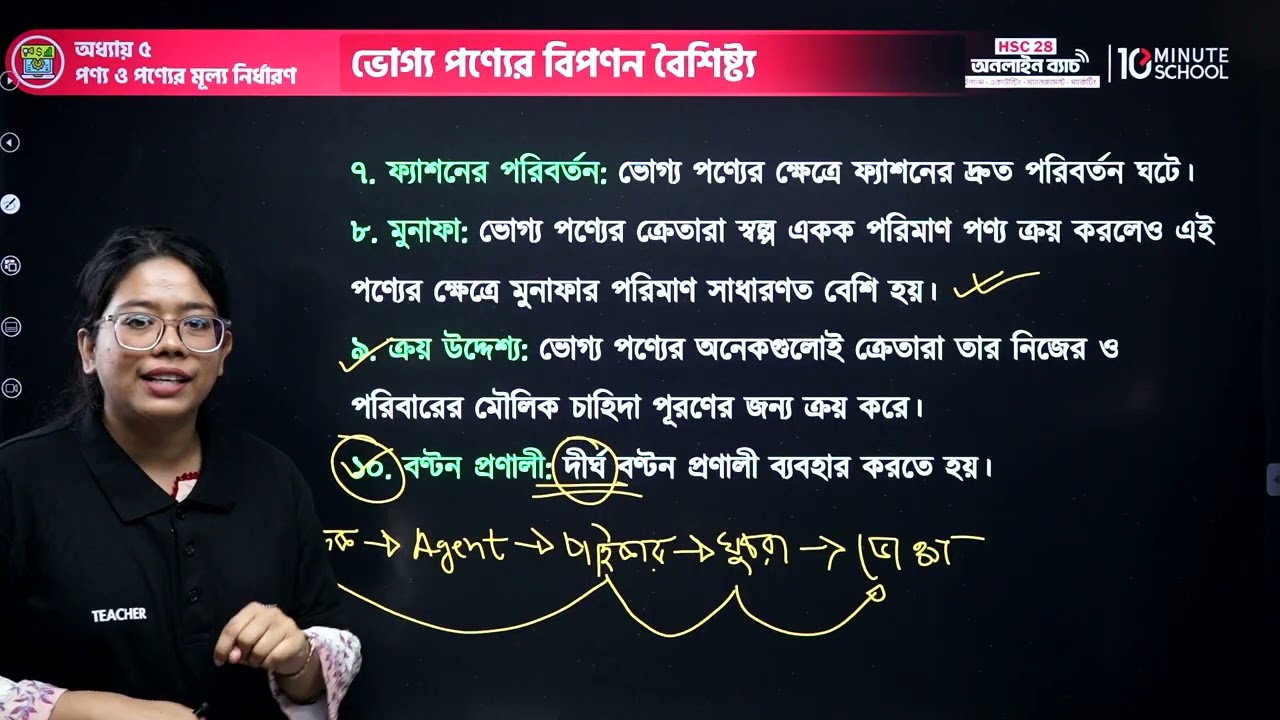 অধ্যায় ৫
পণ্য ও পণ্যের মূল্য নির্ধারণ
ভোগ্য পণ্যের বিপণন বৈশিষ্ট্য
HSC 28
অনলাইন ব্যাচ
10 MINUTE SCHOOL
৭. ফ্যাশনের পরিবর্তন: ভোগ্য পণ্যের ক্ষেত্রে ফ্যাশনের দ্রুত পরিবর্তন ঘটে।
৮. মুনাফা: ভোগ্য পণ্যের ক্রেতারা স্বল্প একক পরিমাণ পণ্য ক্রয় করলেও এই
পণ্যের ক্ষেত্রে মুনাফার পরিমাণ সাধারণত বেশি হয়।
৯. ক্রয় উদ্দেশ্য: ভোগ্য পণ্যের অনেকগুলোই ক্রেতারা তার নিজের ও
পরিবারের মৌলিক চাহিদা পূরণের জন্য ক্রয় করে।
১০. বণ্টন প্রণালী: দীর্ঘ বণ্টন প্রণালী ব্যবহার করতে হয়।
→ Agent → পাইকার → খুচরা → ভোক্তা
TEACHER